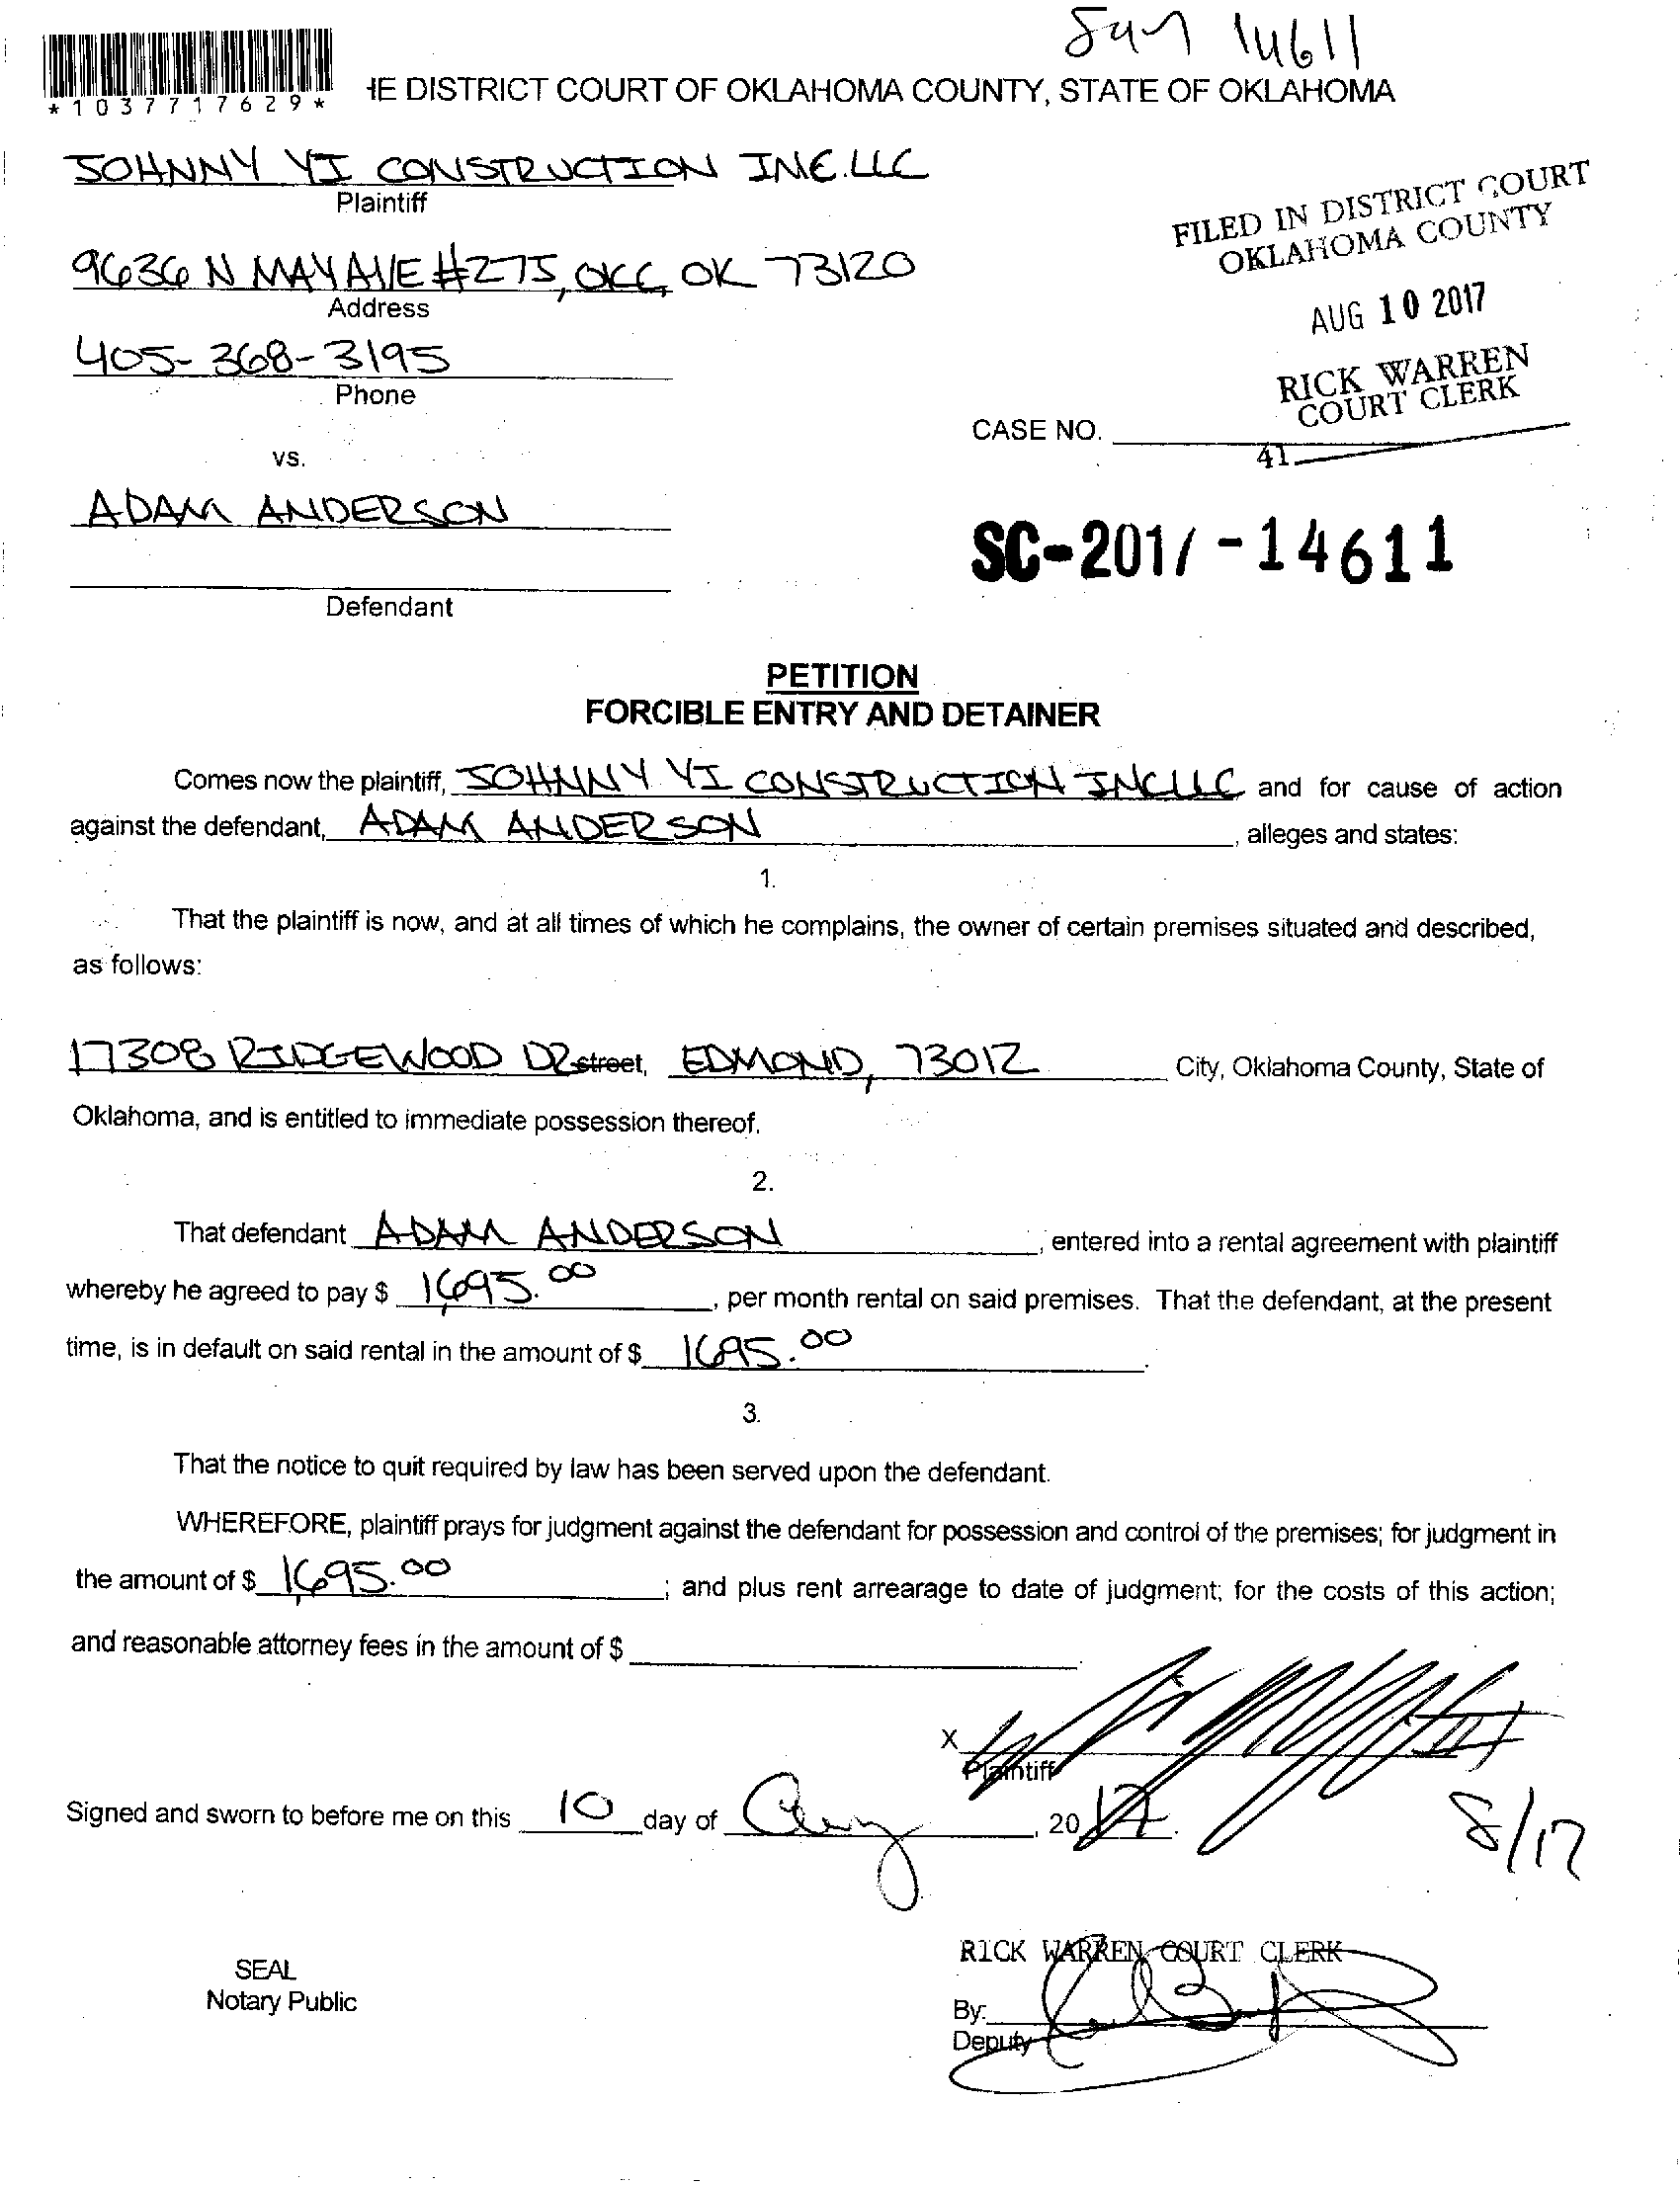 14611
*1037717629*
HE DISTRICT COURT OF OKLAHOMA COUNTY, STATE OF OKLAHOMA
JOHNNY YI CONSTRUCTION INC.LLC
Plaintiff
FILED IN DISTRICT COURT
OKLAHOMA COUNTY
9636 N MAY AVE #275, OKC, OK 73120
Address
AUG 10 2017
405-368-3195
Phone
RICK WARREN
COURT CLERK
CASE NO.
41
vs.
ADAM ANDERSON
SC-201/-14611
Defendant
PETITION
FORCIBLE ENTRY AND DETAINER
Comes now the plaintiff, JOHNNY YI CONSTRUCTION INC LLC and for cause of action
against the defendant, ADAM ANDERSON, alleges and states:
1.
That the plaintiff is now, and at all times of which he complains, the owner of certain premises situated and described,
as follows:
17308 RIDGEWOOD DR street, EDMOND, 73012 City, Oklahoma County, State of
Oklahoma, and is entitled to immediate possession thereof.
2.
That defendant ADAM ANDERSON, entered into a rental agreement with plaintiff
whereby he agreed to pay $ 1695.00, per month rental on said premises. That the defendant, at the present
time, is in default on said rental in the amount of $ 1695.00.
3.
That the notice to quit required by law has been served upon the defendant.
WHEREFORE, plaintiff prays for judgment against the defendant for possession and control of the premises; for judgment in
the amount of $ 1695.00; and plus rent arrearage to date of judgment; for the costs of this action;
and reasonable attorney fees in the amount of $
X
Plaintiff
Signed and sworn to before me on this 10 day of Aug, 2017.
8/17
RICK WARREN COURT CLERK
SEAL
Notary Public
By:
Deputy